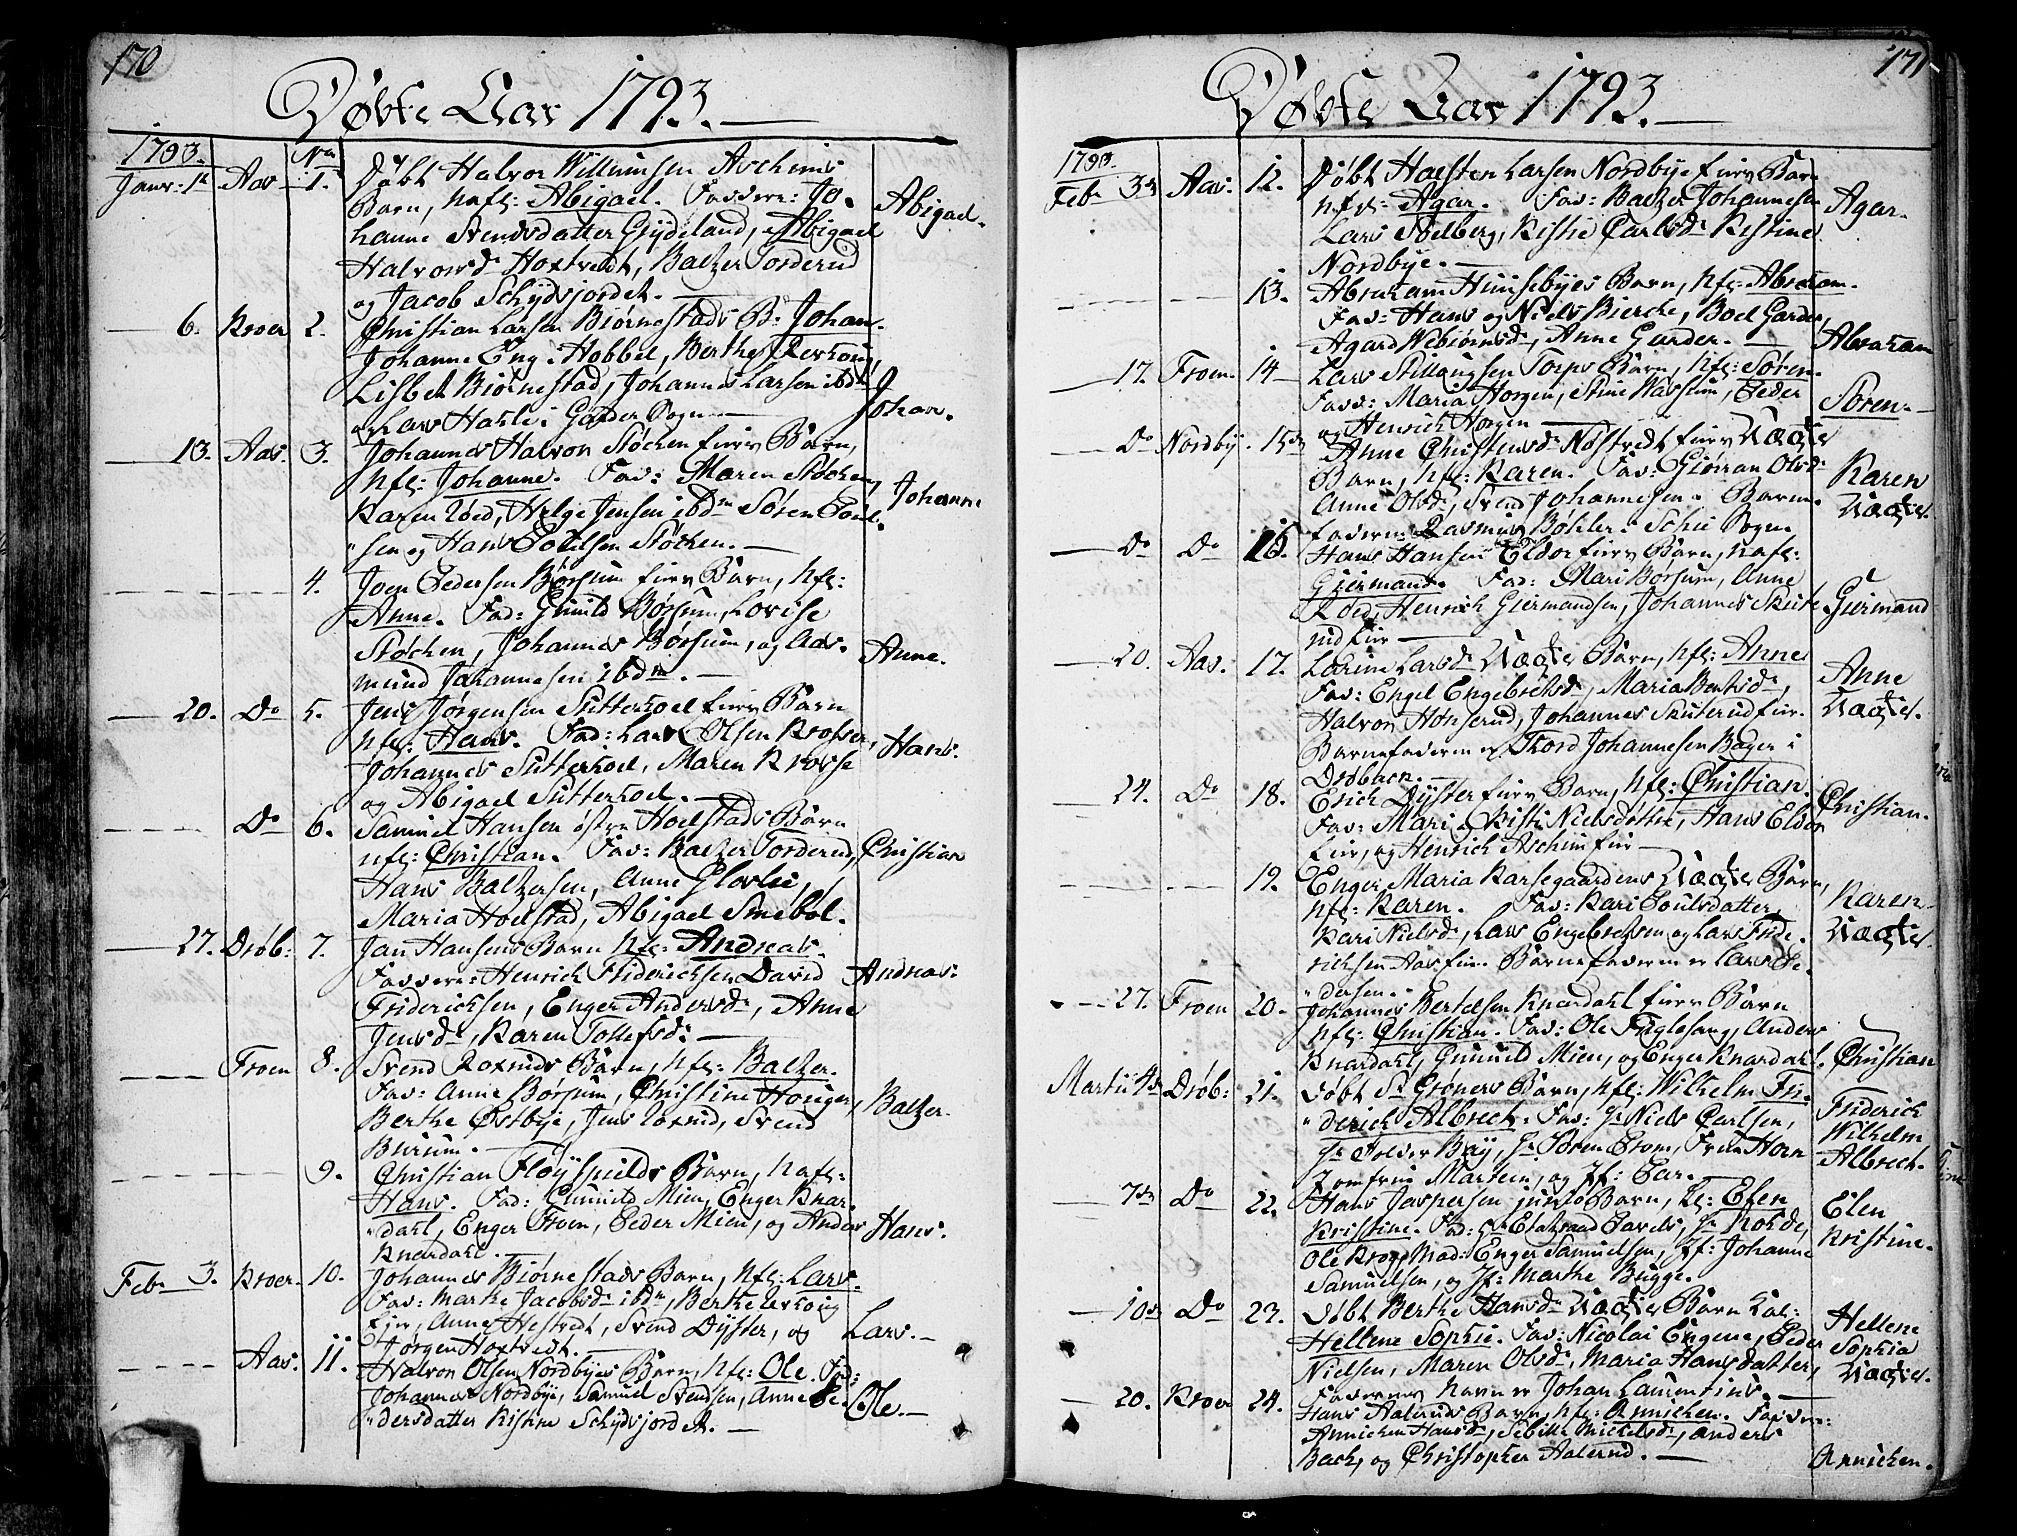 170
Døbte Aar 1793.
1793. No
Janr: 1te Aas 1. Døbt Halvor Willumsen Aschims
Barn, kafl: Abigael. Faddere: Jo-
hanne Svendsdatter Gydeland, Abigael
Halvorsdr Hoxtvedt, Baltzer Torderud
og Jacob Schydsjordet.
Abigael.
6. Kroer 2. Christian Larsen Biørnestads B: Johan.
Johanne Eng i Hobbel, Berthe
Lisbet Biørnestad, Johannes Larsen ibdm
og Lars Hasle i Garder Sogn.
Johan.
13. Aas. 3. Johannes Halvorsen Støchen Barn,
kfl: Johanne. Fad: Maren Støchen,
Karen Røed, Helge Jensen ibdm Søren Poul-
sen og Hans Poulsen Støchen.
Johanne
4. Joen Pedersen Børsum Barn, kfl:
Anne. Fad: Gunild Børsum, Lovise
Støchen, Johannes Børsum, og Aas-
mund Johannesen ibdm.
Anne.
20. Do 5. Jens Jørgensen Sitterkoel Barn
kfl: Hans. Fad: Lars Olsen Krosser,
Johannes Sitterkoel, Maren Krosse
og Abigael Sitterkoel.
Hans.
Do 6. Samuel Hansen østre Hoelstads Barn
kfl: Christian. Fad: Baltzer Torderud,
Hans Baltzersen, Anne Glorlie,
Maria Hoelstad, Abigael Smebøl.
Christian
27. Drøb: 7. Jan Hansens Barn kfl: Andreas.
Faddere: Henrich Friderichsen, David
Friderichsen, Enger Andersdr, Anne
Jensdr, Karen Tollefsdr.
Andreas.
Froen 8. Svend Roxruds Barn, kfl: Baltzer.
Fad: Anne Børsum, Christine Houger,
Berthe Østbye, Jens Roxrud, Svend
Burum.
Baltzer.
9. Christian Fløyspields Barn, kafl:
Hans. Fad: Gunild Mien, Enger Knar-
dahl, Enger Froen, Peder Mien, og Anders
Knardahl.
Hans.
Febr 3. Kroer. 10. Johannes Biørnestads Barn, kfl: Lars.
Fad: Marthe Jacobsdr ibdm, Berthe
Anne Hestvedt, Svend Dyster, og
Jørgen Hoxtvedt.
Lars.
Aas. 11. Halvor Olsen Nordbyes Barn, kfl: Ole. Fad:
Johannes Nordbye, Samuel Svendsen, Anne Pe-
dersdatter Kistine Schydsjordet.
Ole.
171
Døbte Aar 1793.
1793.
Feb: 3die Aas. 12. Døbt Halsten Larsen Nordbye Barn
kfl: Agar. Fad: Baltzer Johannesen
Lars Solberg, Kistie Carlsdr Kistine
Nordbye.
Agar.
13. Abraham Huusebyes Barn, kfl: Abraham.
Fad: Hans og Niels Bierche, Boel Garder,
Agard Webiørnsdr, Anne Garder.
Abraham
17. Froen. 14 Lars Stillougsen Torps Barn, kfl: Søren.
Fad: Maria Horgen, Stine Wassum, Peder
og Henrich Horgen
Søren.
Do Nordby. 15de Anne Christensdr Nøstvedt Uægte
Barn, kfl: Karen. Fad: Giøran Olsdr
Anne Olsdr, Svend Johannesen. Barne-
faderen: Rasmus Bøhler i Schie Sogn.
Karen
Uægte.
Do Do 16. Hans Hansen Eldor Barn, kafl:
Giermand. Fad: Mari Børsum, Anne
Røed, Henrich Giermandsen, Johannes Skute-
rud
Giermand
20. Aas. 17. Larine Larsdr Uægte Barn, kfl: Anne
Fad: Engel Engebretsdr, Maria Bertsdr,
Halvor Hønserud, Johannes Skuterud
Barnefaderen er Thord Johannesen Bager i
Drøbach.
Anne
Uægte.
24. Do 18. Erich Dyster Barn, kfl: Christian.
Fad: Mari, Kisti Nielsdøttre, Hans Eldor
og Henrich Aschim
Christian.
19. Enger Maria Karsegaardens Uægte Barn,
kfl: Karen. Fad: Kari Poulsdatter,
Kari Nielsdr, Lars Engebretsen og Lars Fride-
richsen Aas. Barnefaderen er Lars Pe-
dersen.
Karen
Uægte.
27. Froen 20. Johannes Bertelsen Knardahl Barn
kfl: Christian. Fad: Ole Fuglesang, Anders
Knardahl, Gunuld Mien, og Enger Knardahl.
Christian
Martii 4de Drøb: 21. Døbt Sr Grøners Barn, kfl: Wilhelm Fri-
derich Albrech. Fad: Hr Niels Carlsen,
Hr Bay, Hr Søren Prom, Frue Horn
Jomfrue Martein, og Jf: Par.
Friderich
Wilhelm
Albrech.
7de Do 22. Hans Jaspersen Barn, k: Elen
Kristine. Fad: Hr Korde,
Ole Krog, Mad: Enger Samuelsen, Jf: Johanne
Samuelsen, og Jf: Marthe Bugge.
Elen
Kristine.
10de Do 23. Døbt Berthe Hansdr Uægte Barn kal:
Hellene Sophie. Fad: Nicolai Eugene, Peder
Nielsen, Maren Olsdr, Maria Hansdatter,
Faderens Navn er Johan Laurentius.
Hellene
Sophia
Uægte.
20. Kroer 24. Hans Aaleruds Barn, kfl: Annichen. Faddere:
Annichen Hansdr, Sebille Michelsdr, Anders
Bach, og Christopher Aalerud.
Annichen.